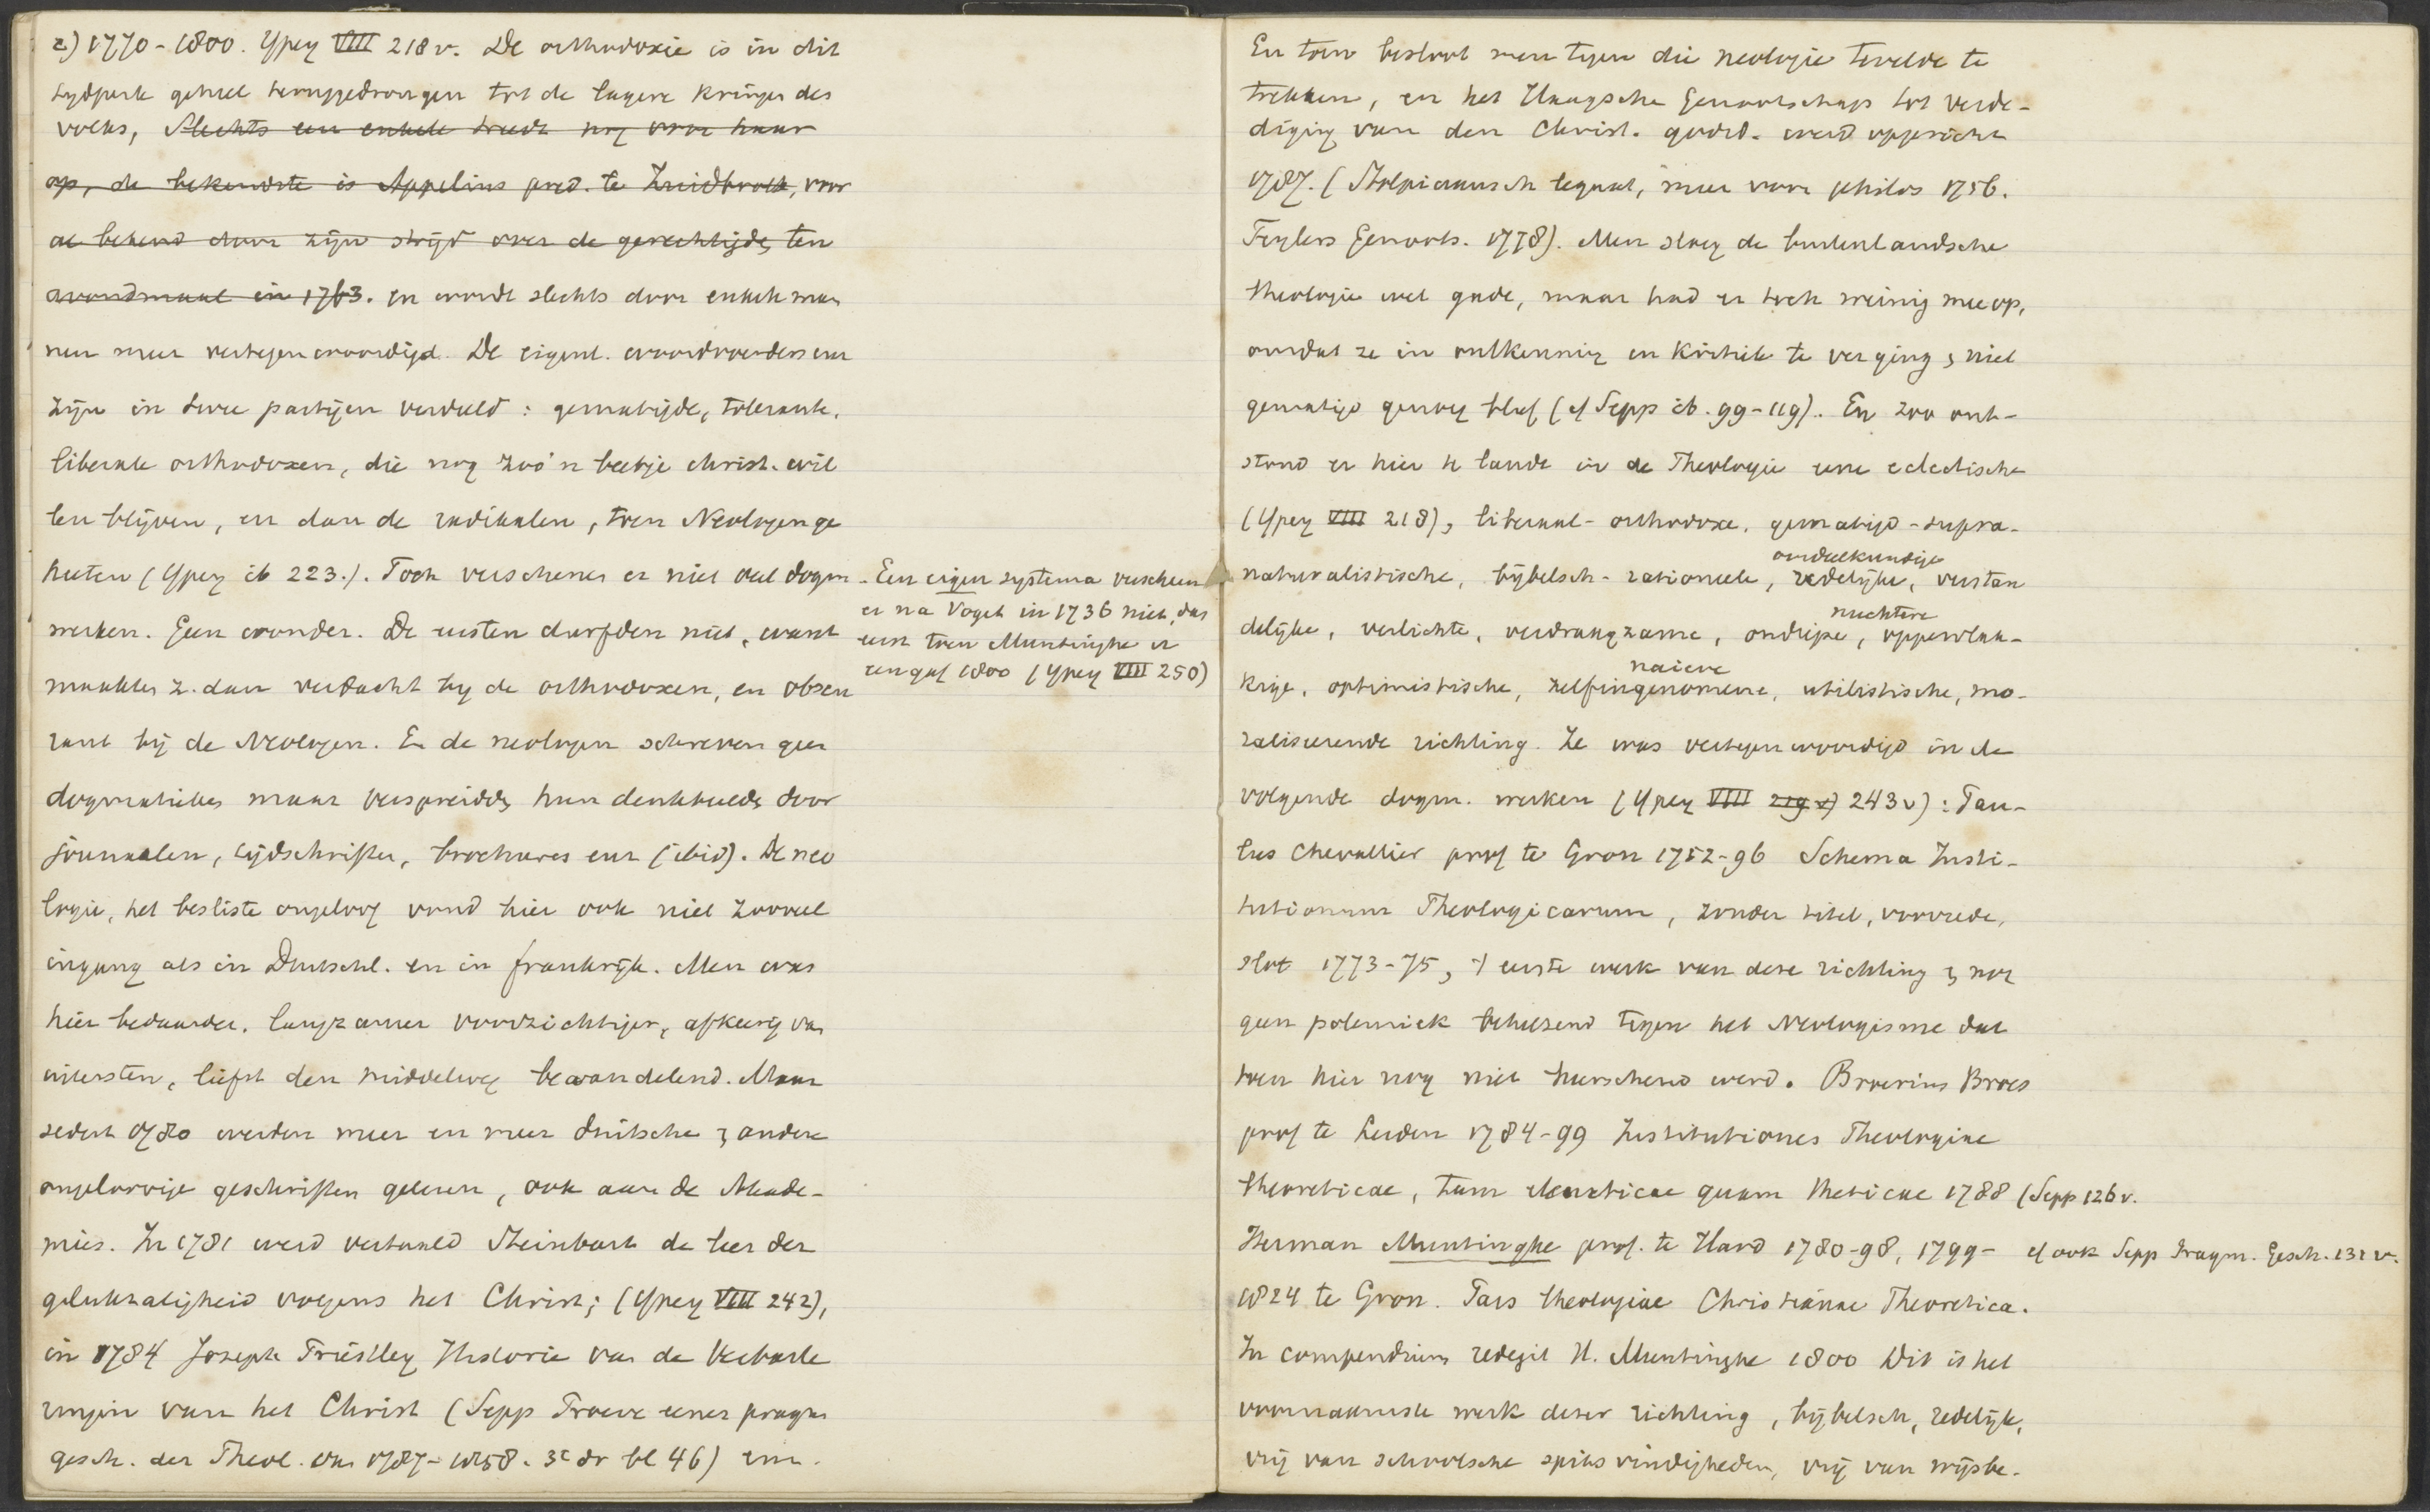 c) 1770-1800. Ypey VIII 218 v. De orthodoxie is in dit
tydperk geheel teruggedrongen tot de lagere kringen des
volks, slechts een enkele treedt nog voor haar
op, de bekendste is Appelius pred. te Zuidbroek, voor
al bekend door zijn strijd over de gerechtigde, ten
avondmaal in 1763. en wordt slechts door enkele man
nen meer vertegenwoordigd. De eigenl. woordvoerders enz
zijn in twee partijen verdeeld: gematigde, tolerante,
liberale orthodoxen, die nog zoo'n beetje christ. wil
len blijven, en dan de radikalen, toen Neologen ge
heeten (Ypey ib 223.). Toch verschenen er niet veel dogm.
werken. Geen wonder. De eersten durfden niet, want
maakten z. dan verdacht by de orthodoxen, en obscu
rant bij de Neologen. En de neologen schreven geen
dogmatieken maar verspreidden hun denkbeelden door
journalen, tijdschriften, brochures enz (ibid). De neo
logie, het besliste ongeloof vond hier ook niet zooveel
ingang als in Duitschl. en in frankrijk. Men was
hier bedaarder, langzamer voorzichtiger, afkeerig van
uitersten, liefst den middelweg bewandelend. Maar
sedert 1780 werden meer en meer duitsche & andere
ongeloovige geschriften gelezen, ook aan de Akade-
mies. In 1781 werd vertaald Steinbart de leer der
gelukzaligheid volgens het Christ; (Ypey VIII 242),
in 1784 Joseph Priestley Historie van de Verbaste
ringen van het Christ (Sepp Proeve eener pragm
gesch. der Theol. van 1787-1858. 3e dr bl 46) enz.
Een eigen systema verscheen
er na Voget in 1736 niet, dan
eerst toen Muntinghe er
een gaf 1800 (Ypey VIII 250)
En toen besloot men tegen die neologie te velde te
trekken, en het Haagsche Genootschap tot verde-
diging van den Christ. godsd. werd opgericht
1787. (Stolpiaansch legaat, meer voor philos 1756.
Teylers Genoots. 1778). Men sloeg de buitenlandsche
theologie wel gade, maar had er toch weinig mee op,
omdat ze in ontkenning en kritiek te ver ging & niet
gematigd genoeg bleef (cf Sepp ib. 99-119). En zoo ont-
stond er hier te lande in de Theologie eene eclectische
(Ypey VIII 218), liberaal-orthodoxe, gematigd-supra-
oordeelkundige
naturalistische, bijbelsch-rationeele, redelijke, verstan
nuchtere
delijke, verlichte, verdraagzame, ondiepe, oppervlak-
naieve
kige, optimistische, zelfingenomene, utilistische, mo-
raliseerende richting. Ze was vertegenwoordigd in de
volgende dogm. werken (Ypey VIII 219 v) 243 v): Pau-
lus Chevallier prof te Gron 1752-96 Schema Insti-
tutionum Theologicarum, zonder titel, voorrede,
slot 1773-75, 't eerste werk van deze richting & nog
geen polemiek behelzend tegen het Neologisme dat
toen hier nog niet heerschend werd. Broerius Broes
prof te Leiden 1784-99 Institutiones Theologiae
theoreticae, tum elencticae quam theticae 1788 (Sepp 126 v.
Herman Muntinghe prof. te Hard 1780-98, 1799- cf ook Sepp Pragm. Gesch. 131 v.
1824 te Gron. Pars theologiae Christianae Theoretica.
In compendium redegit H. Muntinghe 1800 Dit is het
voornaamste werk dezer richting, bijbelsch, redelijk,
vrij van schoolsche spitsvindigheden, vrij van wijsbe-